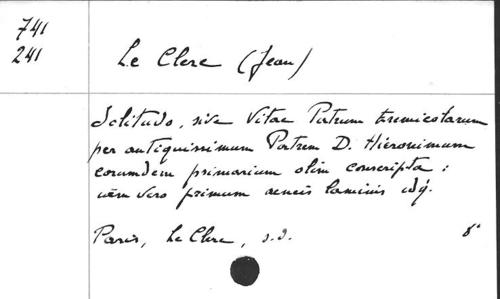 741
241
Le Clerc (Jean)
Solitudo, sive Vitae Patrum Eremicolarum
per antiquissimum Patrem D. Hieronimum
eorumdem primarium olim conscripta :
vero primum aeneis laminis
Paris, Le Clerc, s.d. 8°